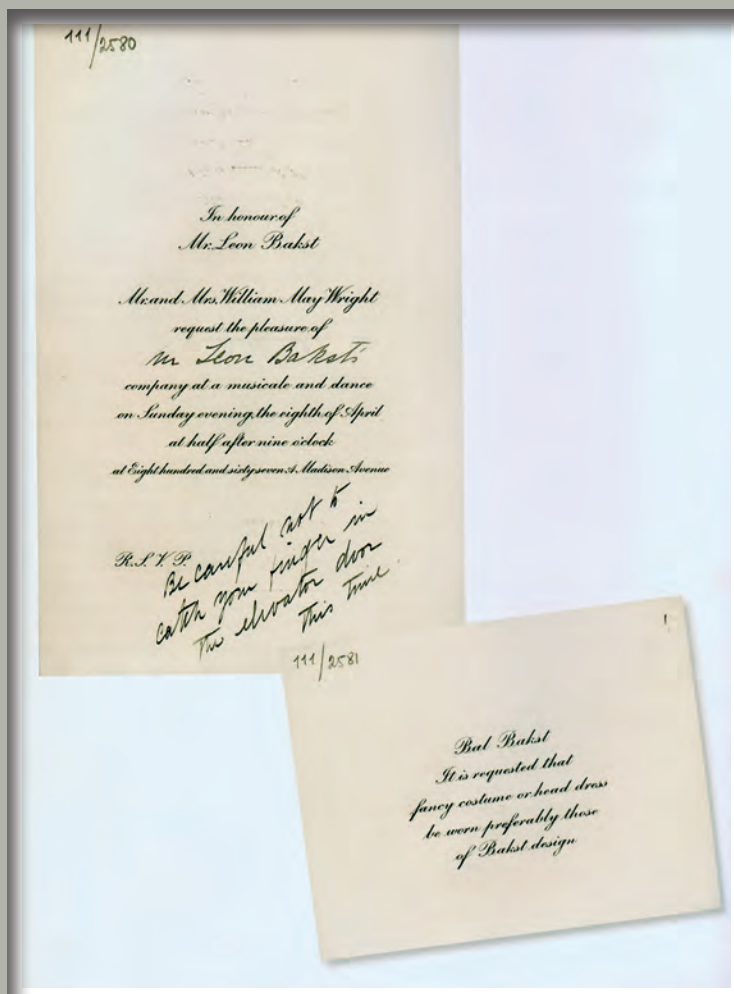 111/2580
In honour of
Mr. Leon Bakst
Mr. and Mrs. William May Wright
request the pleasure of
Mr Leon Baksts
company at a musicale and dance
on Sunday evening, the eighth of April
at half after nine o'clock
at Eight hundred and sixty seven A Madison Avenue
R.S.V.P.
Be careful not to
catch your finger in
the elevator door
this time.
111/2581
Bal Bakst
It is requested that
fancy costume or head dress
be worn preferably those
of Bakst design